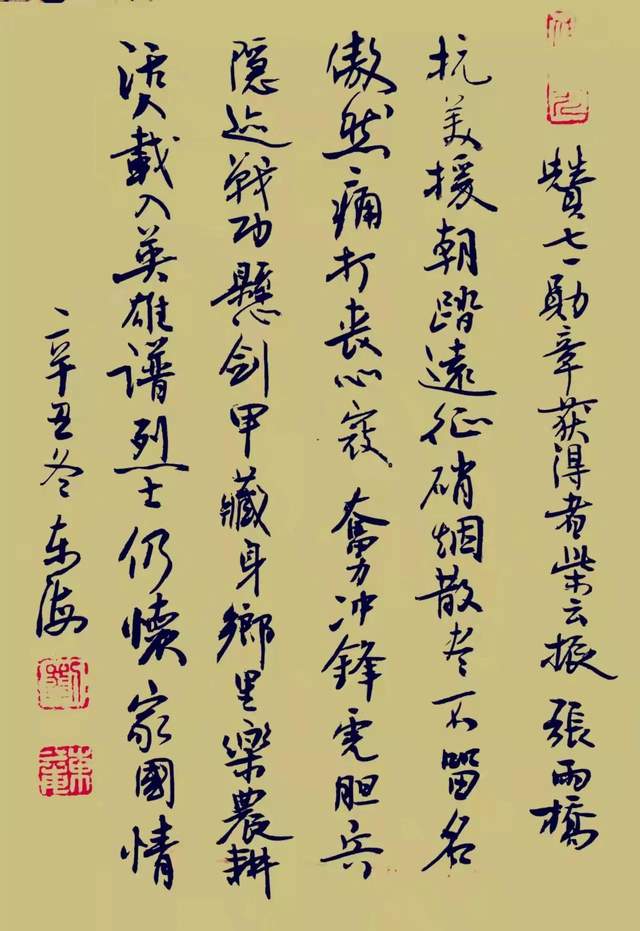 赞七一勋章获得者柴云振 張雨橋
抗美援朝踏遠征硝烟散尽不留名
傲然痛打丧心寇。奮力冲鋒虎胆兵
隱迹戰功懸剑甲藏身鄉里樂農耕
活人載入英雄谱烈士仍懷家國情
辛丑冬东海